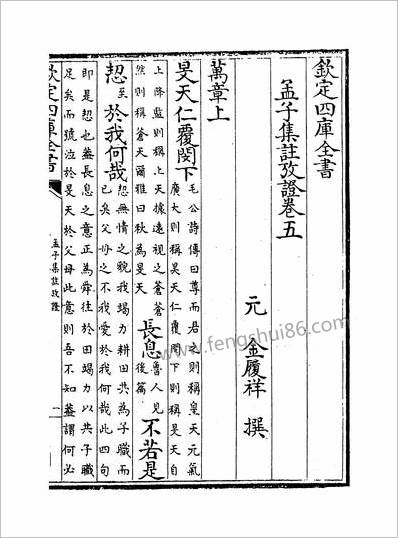 欽定四庫全書
孟子集註攷證卷五
元 金履祥 撰
萬章上
旻天仁覆閔下
毛公詩傳曰尊而君之則稱皇天元氣
廣大則稱昊天仁覆閔下則稱旻天自
上降監則稱上天據遠視之蒼蒼
然則稱蒼天爾雅曰秋為旻天
長息
魯人見
後篇
不若是
恝至於我何哉
恝無情之貌我竭力耕田共為子職而
已矣父母之不我愛於我何哉此四句
即是恝也蓋長息之意正為舜往於田竭力以共子職
足矣而號泣於旻天於父母此意則吾不知蓋謂何必
欽定四庫全書
孟子集註攷證
一
www.fengshui86.com